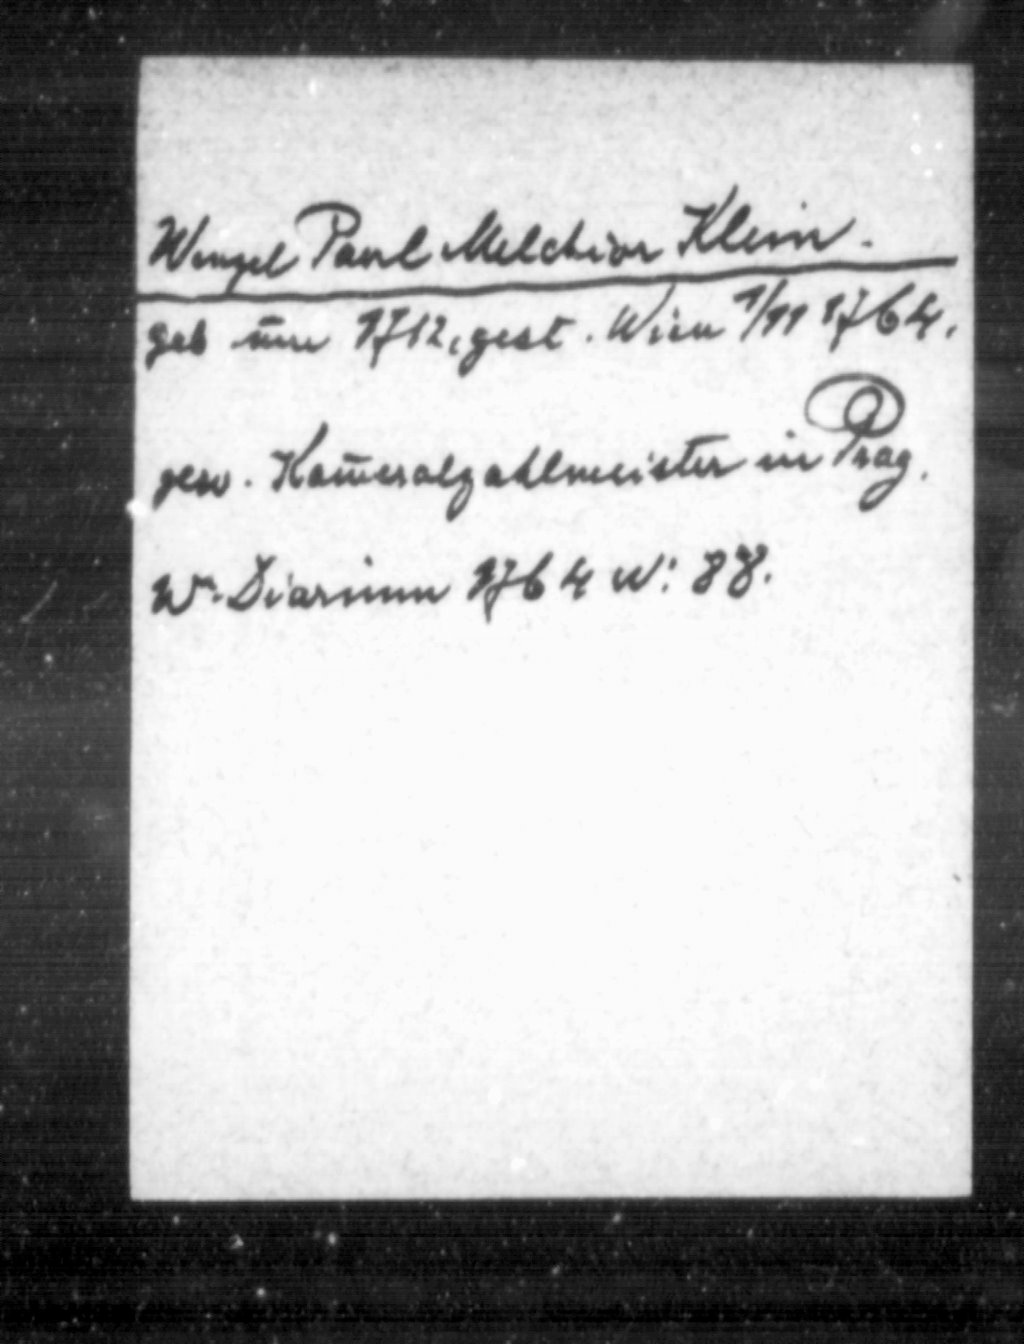 Wenzel Paul Melchior Klein.
geb um 1712, gest. Wien 1/11 1764.
gew. Kameralzahlmeister in Prag.
W. Diarium 1764 N: 88.